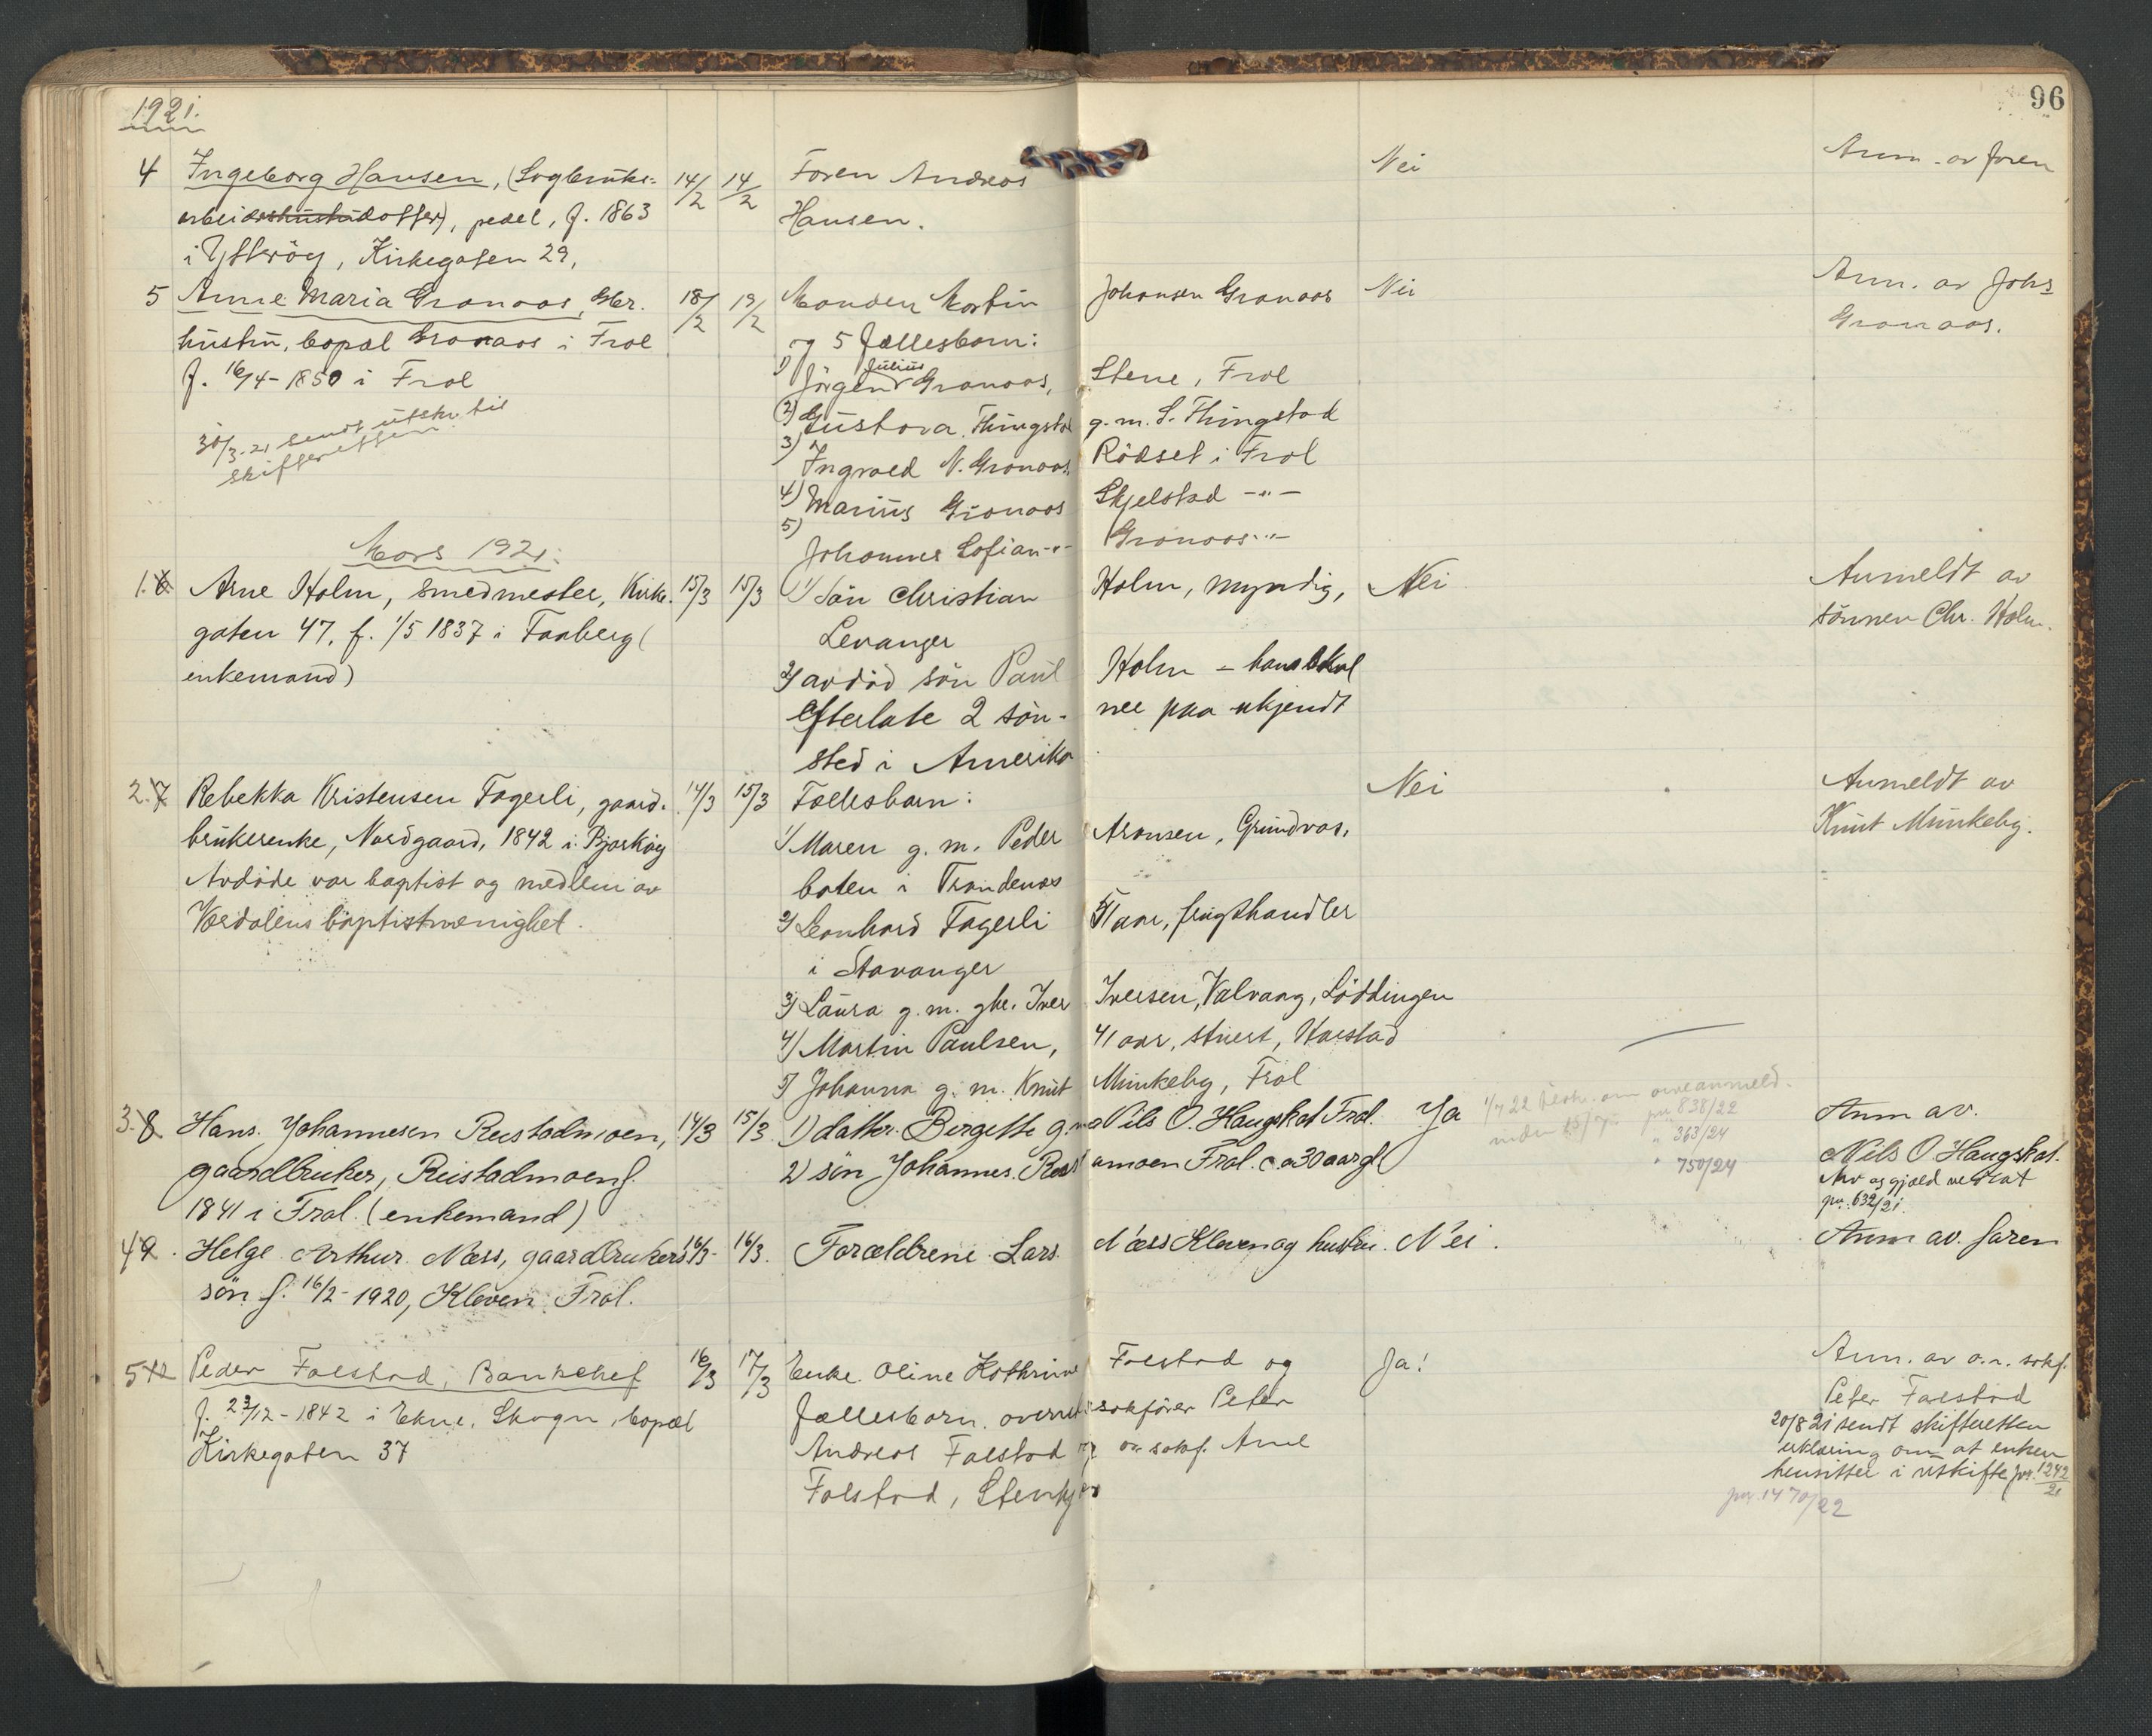 1921.
96
4 Ingeborg Hansen, (Sagbruks- 14/2 14/2 Faren Andreas Nei Anm. av faren
arbeiderdatter), pedel, f. 1863 Hansen.
i Ytterøy, Kirkegaten 29,
5 Anne Maria Granaas, Gbr. 18/2 19/2 Manden Martin Johansen Granaas Nei Anm. av Johs
hustru, bopæl Granaas i Frol og 5 fællesbarn: Granaas.
f. 16/4-1850 i Frol 1) Jørgen Julius Granaas, Stene, Frol
30/3-21 sendt utskr. til 2) Gustava Thingstad g.m. S. Thingstad
skifteretten 3) Ingvald N. Granaas, Rødset i Frol
4) Marius Granaas Skjelstad -"-
5) Johannes Sofian -"- Granaas -"-
Mars 1921.
1. 6 Arne Holm, smedmester, Kirke- 15/3 15/3 1) Søn Christian Holm, myndig, Nei Anmeldt av
gaten 47, f. 1/5 1837 i Faaberg ( Levanger sønnen Chr. Holm.
enkemand) 2) avdød søn Paul Holm - hans
efterlate 2 søn- ner paa ukjendt
sted i Amerika
2. 7 Rebekka Kristensen Fagerli, gaard- 14/3 15/3 Fællesbarn: Nei Anmeldt av
brukerenke, Nordgaard, 1842 i Bjarkøy 1) Maren g. m. Peder Aronsen, Grundvas, Knut Munkeby.
Avdøde var baptist og medlem av boten i Trondenæs
Værdalens baptistmenighet. 2) Leonhard Fagerli 51 aar, frugthandler
i Stavanger
3) Laura g. m. gbr. Iver Iversen, Valvaag, Løddingen
4) Martin Paulsen, 41 aar, stuert, Harstad
5) Johanna g. m. Knut Munkeby, Frol
3. 8 Hans Johannesen Reistadmoen, 14/3 15/3 1) datter Birgette g.m. Nils O. Haugskot Frol. Ja 1/7 22 om arveanmeld. Anm av.
gaardbruker, Reistadmoen f. 2) søn Johannes Reist amoen Frol. c.a 30 aar gl inden 15/7. pr 838/22 Nils O. Haugskot.
1841 i Frol. (enkemand) " 363/24 Arv og gjæld vedtat
" 750/24 pr. 632/21.
4 9. Helge Arthur Næss, gaardbrukers 16/3- 16/3. Forældrene Lars Næss Kleven og hustru. Nei. Anm av. faren
søn f. 16/2-1920, Kleven, Frol.
5 10 Peder Falstad, Bankchef 16/3 17/3 Enke Oline Kathrine Falstad og Ja! Anm. av o.r. sakf.
f. 23/12-1842 i Ekne, Skogn, bopæl fællesbarn overrets- sakfører Peter Peter Falstad
Kirkegaten 37 Andreas Falstad og or. sakf. Arne 20/8 21 sendt skifteretten
Falstad, Stenkjær erklæring om at enken
hensitter i uskifte jnr. 1242/21
jnr. 1470/22